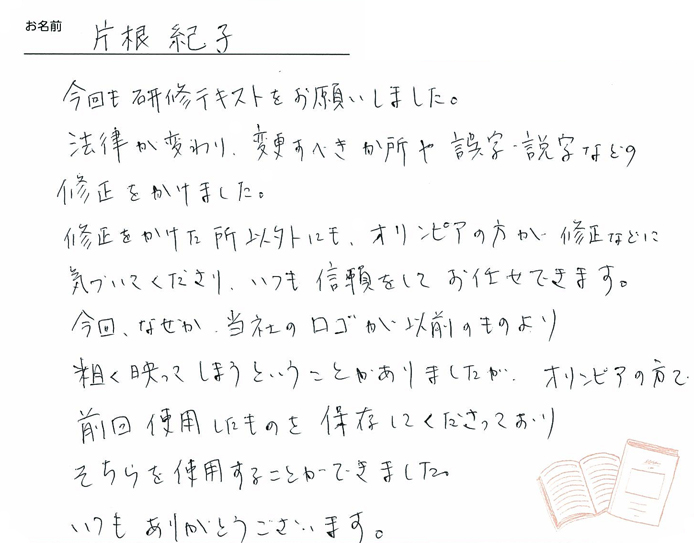 お名前 片根 紀子
今回も研修テキストをお願いしました。
法律が変わり、変更すべきか所や誤字・説字などの
修正をかけました。
修正をかけた所以外にも、オリンピアの方が修正などに
気づいてくださり、いつも信頼をしてお任せできます。
今回、なぜか、当社のロゴが以前のものより
粗く映ってしまうということがありましたが、オリンピアの方で
前回使用したものを保存してくださっており
そちらを使用することができました。
いつもありがとうございます。